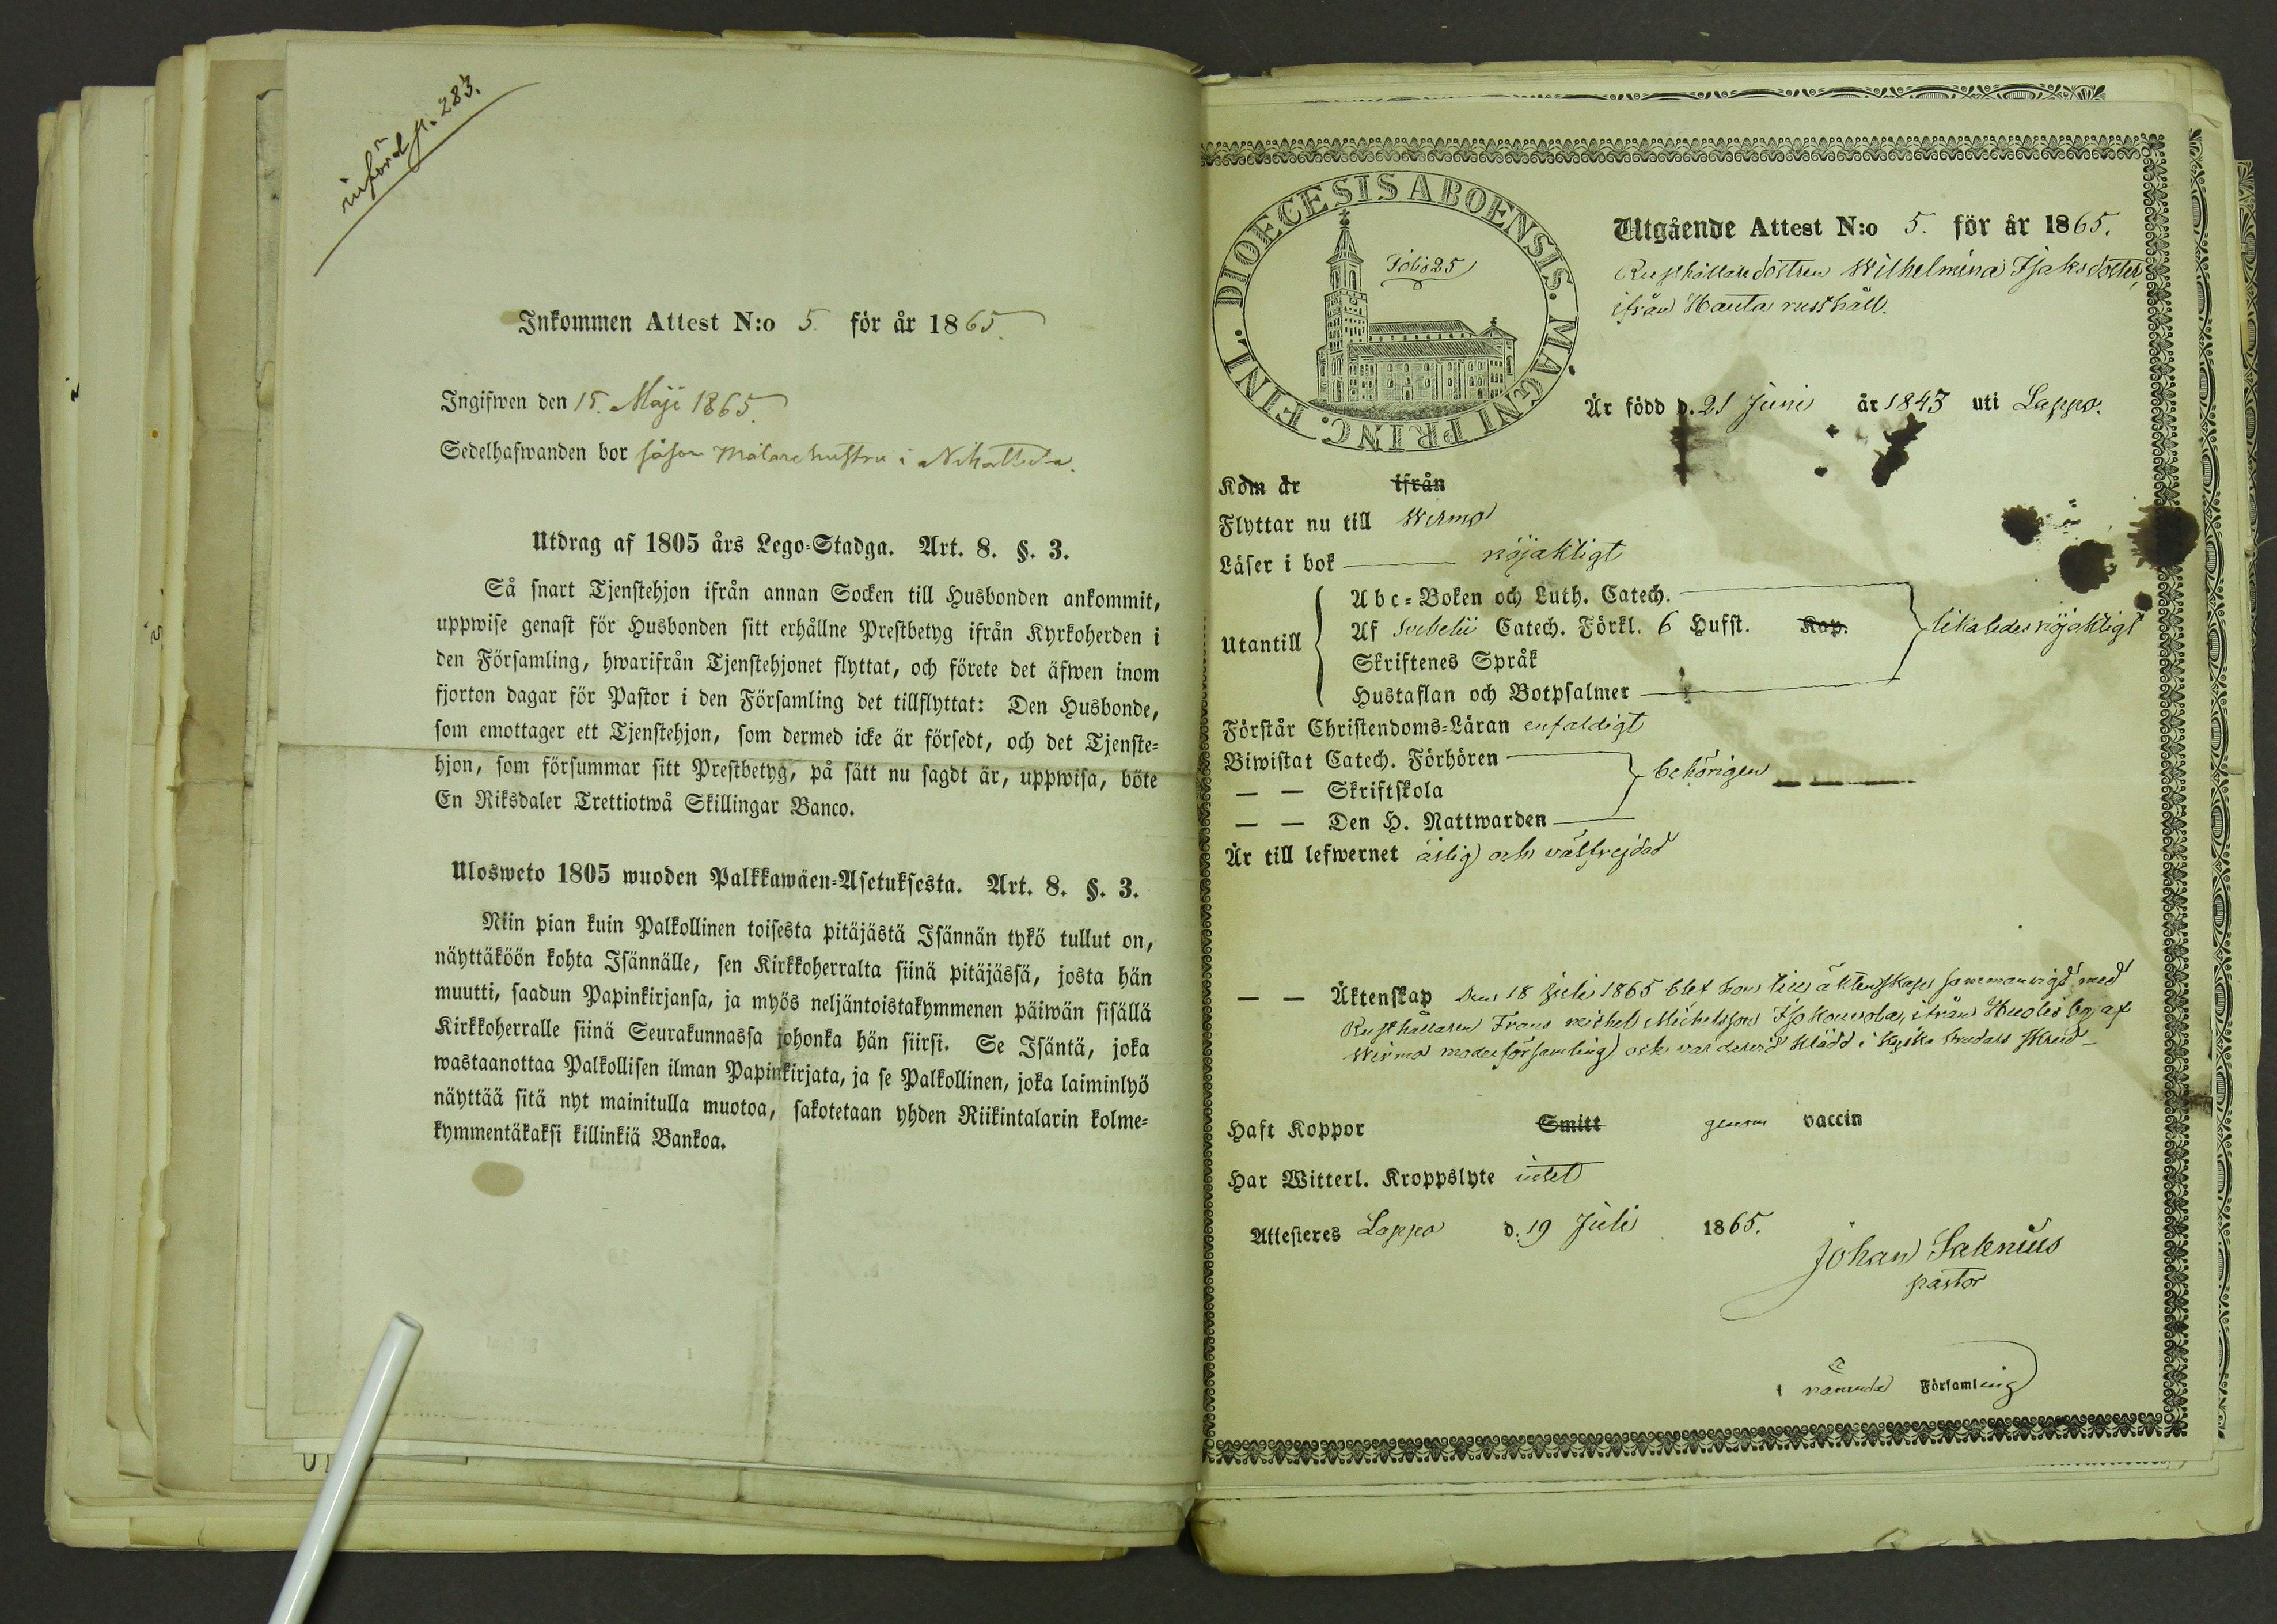 införd p. 283.
Inkommen Attest N:o 5 för år 1865.
Ingifwen den 15. Maji 1865.
Sedelhafwanden bor såsom Målarehustru i
Utdrag af 1805 års Lego-Stadga. Art. 8. §. 3.
Så snart Tjenstehjon ifrån annan Socken till Husbonden ankommit,
uppwise genast för Husbonden sitt erhållne Prestbetyg ifrån Kyrkoherden i
den Församling, hwarifrån Tjenstehjonet flyttat, och förete det äfwen inom
fjorton dagar för Pastor i den Församling det tillflyttat: Den Husbonde,
som emottager ett Tjenstehjon, som dermed icke är försedt, och det Tjenste-
hjon, som försummar sitt Prestbetyg, på sätt nu sagdt är, uppwisa, böte
En Riksdaler Trettiotwå Skillingar Banco.
Ulosweto 1805 wuoden Palkkawäen-Asetuksesta. Art. 8. §. 3.
Niin pian kuin Palkollinen toisesta pitäjästä Isännän tykö tullut on,
näyttäköön kohta Isännälle, sen Kirkkoherralta siinä pitäjässä, josta hän
muutti, saadun Papinkirjansa, ja myös neljäntoistakymmenen päiwän sisällä
Kirkkoherralle siinä Seurakunnassa johonka hän siirsi. Se Isäntä, joka
wastaanottaa Palkollisen ilman Papinkirjata, ja se Palkollinen, joka laiminlyö
näyttää sitä nyt mainitulla muotoa, sakotetaan yhden Riikintalarin kolme-
kymmentäkaksi killinkiä Bankoa.
DIOECESIS ABOENSIS. MAGNI PRINC. FINL.
Folio 25
Utgående Attest N:o 5. för år 1865.
Rusthållaredottren Wilhelmina Isaksdotter,
ifrån Hauta rusthåll.
Är född d. 21 Juni år 1843 uti Lappo.
Kom år ifrån
Flyttar nu till Wirmo
Läser i bok nöjaktigt
Utantill
Abc-Boken och Luth. Catech.
Af Svebelii Catech. Förkl. 6 Hufst. Kap. likaledes nöjaktigt
Skriftenes Språk
Hustaflan och Botpsalmer
Förstår Christendoms-Läran enfaldigt
Biwistat Catech. Förhören
— — Skriftskola behörigen
— — Den H. Nattwarden
Är till lefwernet ärlig och välfrejdad
— — Äktenskap Den 18 Juli 1865 blef hon till äktenskap sammanvigd med
Rusthållaren Frans Michel Michelsson Iso Kouvola, ifrån Huolis by af
Wirmo moderförsamling och var dervid klädd i kyska brudars skrud
Haft Koppor Smitt genom vaccin
Har Witterl. Kroppslyte intet
Attesteres Lappo d. 19 Juli 1865.
Johan Salenius
pastor
i nämnda Församling